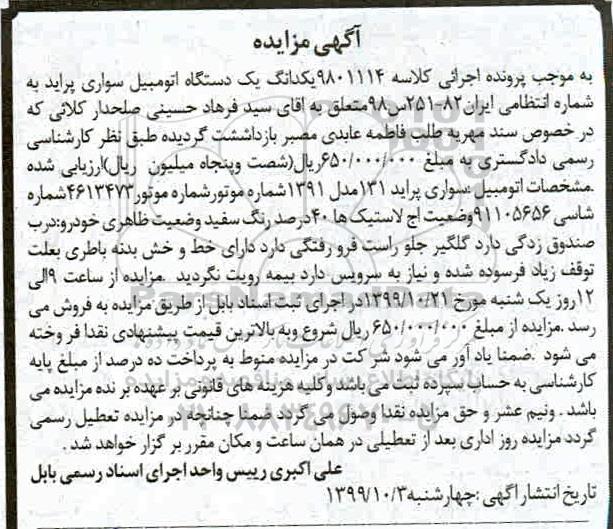 آگهی مزایده
به موجب پرونده اجرائی کلاسه ۹۸۰۱۱۱۴یکدانگ یک دستگاه اتومبیل سواری پراید به
شماره انتظامی ایران۸۲-۲۵۱س۹۸متعلق به اقای سید فرهاد حسینی صلحدار کلائی که
در خصوص سند مهریه طلب فاطمه عابدی مصیر بازداشت گردیده طبق نظر کارشناسی
رسمی دادگستری به مبلغ ۶۵۰/۰۰۰/۰۰۰ریال(شصت وپنجاه میلیون ریال)ارزیابی شده
.مشخصات اتومبیل :سواری پراید ۱۳۱مدل ۱۳۹۱شماره موتورشماره موتور۴۶۱۳۴۷۳شماره
شاسی۹۱۱۰۵۶۵۶وضعیت اج لاستیک ها ۴۰درصد رنگ سفید وضعیت ظاهری خودرو:درب
صندوق زدگی دارد گلگیر جلو راست فرو رفتگی دارد دارای خط و خش بدنه باطری بعلت
توقف زیاد فرسوده شده و نیاز به سرویس دارد بیمه رویت نگردید .مزایده از ساعت ۹الی
۱۲روز یک شنبه مورخ ۱۳۹۹/۱۰/۲۱در اجرای ثبت اسناد بابل از طریق مزایده به فروش می
رسد .مزایده از مبلغ ۶۵۰/۰۰۰/۰۰۰ ریال شروع وبه بالاترین قیمت پیشنهادی نقدا فر وخته
می شود .ضمنا یاد آور می شود شر کت در مزایده منوط به پرداخت ده درصد از مبلغ پایه
کارشناسی به حساب سپرده ثبت می باشد وکلیه هزینه های قانونی بر عهده بر نده مزایده می
باشد . ونیم عشر و حق مزایده نقدا وصول می گردد ضمنا چنانچه در مزایده تعطیل رسمی
گردد مزایده روز اداری بعد از تعطیلی در همان ساعت و مکان مقرر بر گزار خواهد شد .
علی اکبری رییس واحد اجرای اسناد رسمی بابل
تاریخ انتشار آگهی :چهارشنبه۱۳۹۹/۱۰/۳